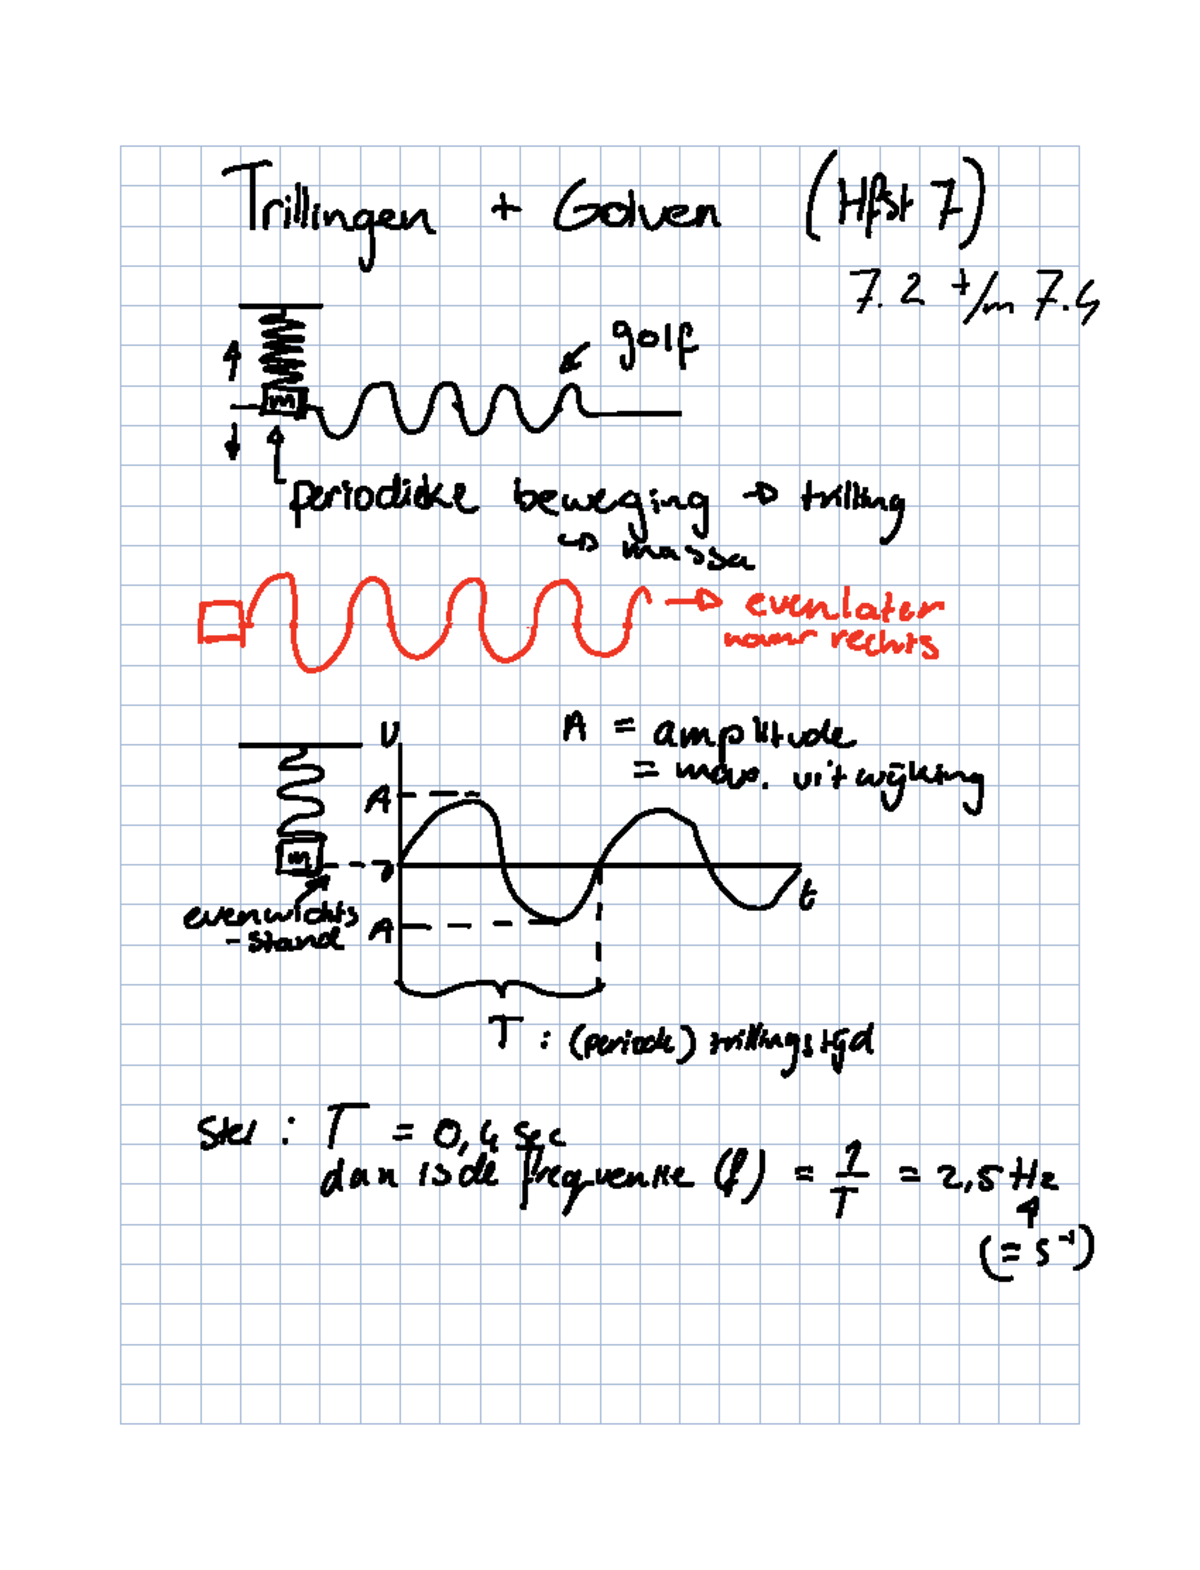 Trillingen + Golven (Hfst 7)
7.2 t/m 7.4
golf
m
periodieke beweging → trilling
↳ massa
→ even later
naar rechts
U
A = amplitude
= max. uitwijking
A
m
0
t
evenwichts
-stand
A
T : (periode) trillingstijd
Stel : T = 0,4 sec
dan is de frequentie (f) = 1/T = 2,5 Hz
(= s⁻¹)